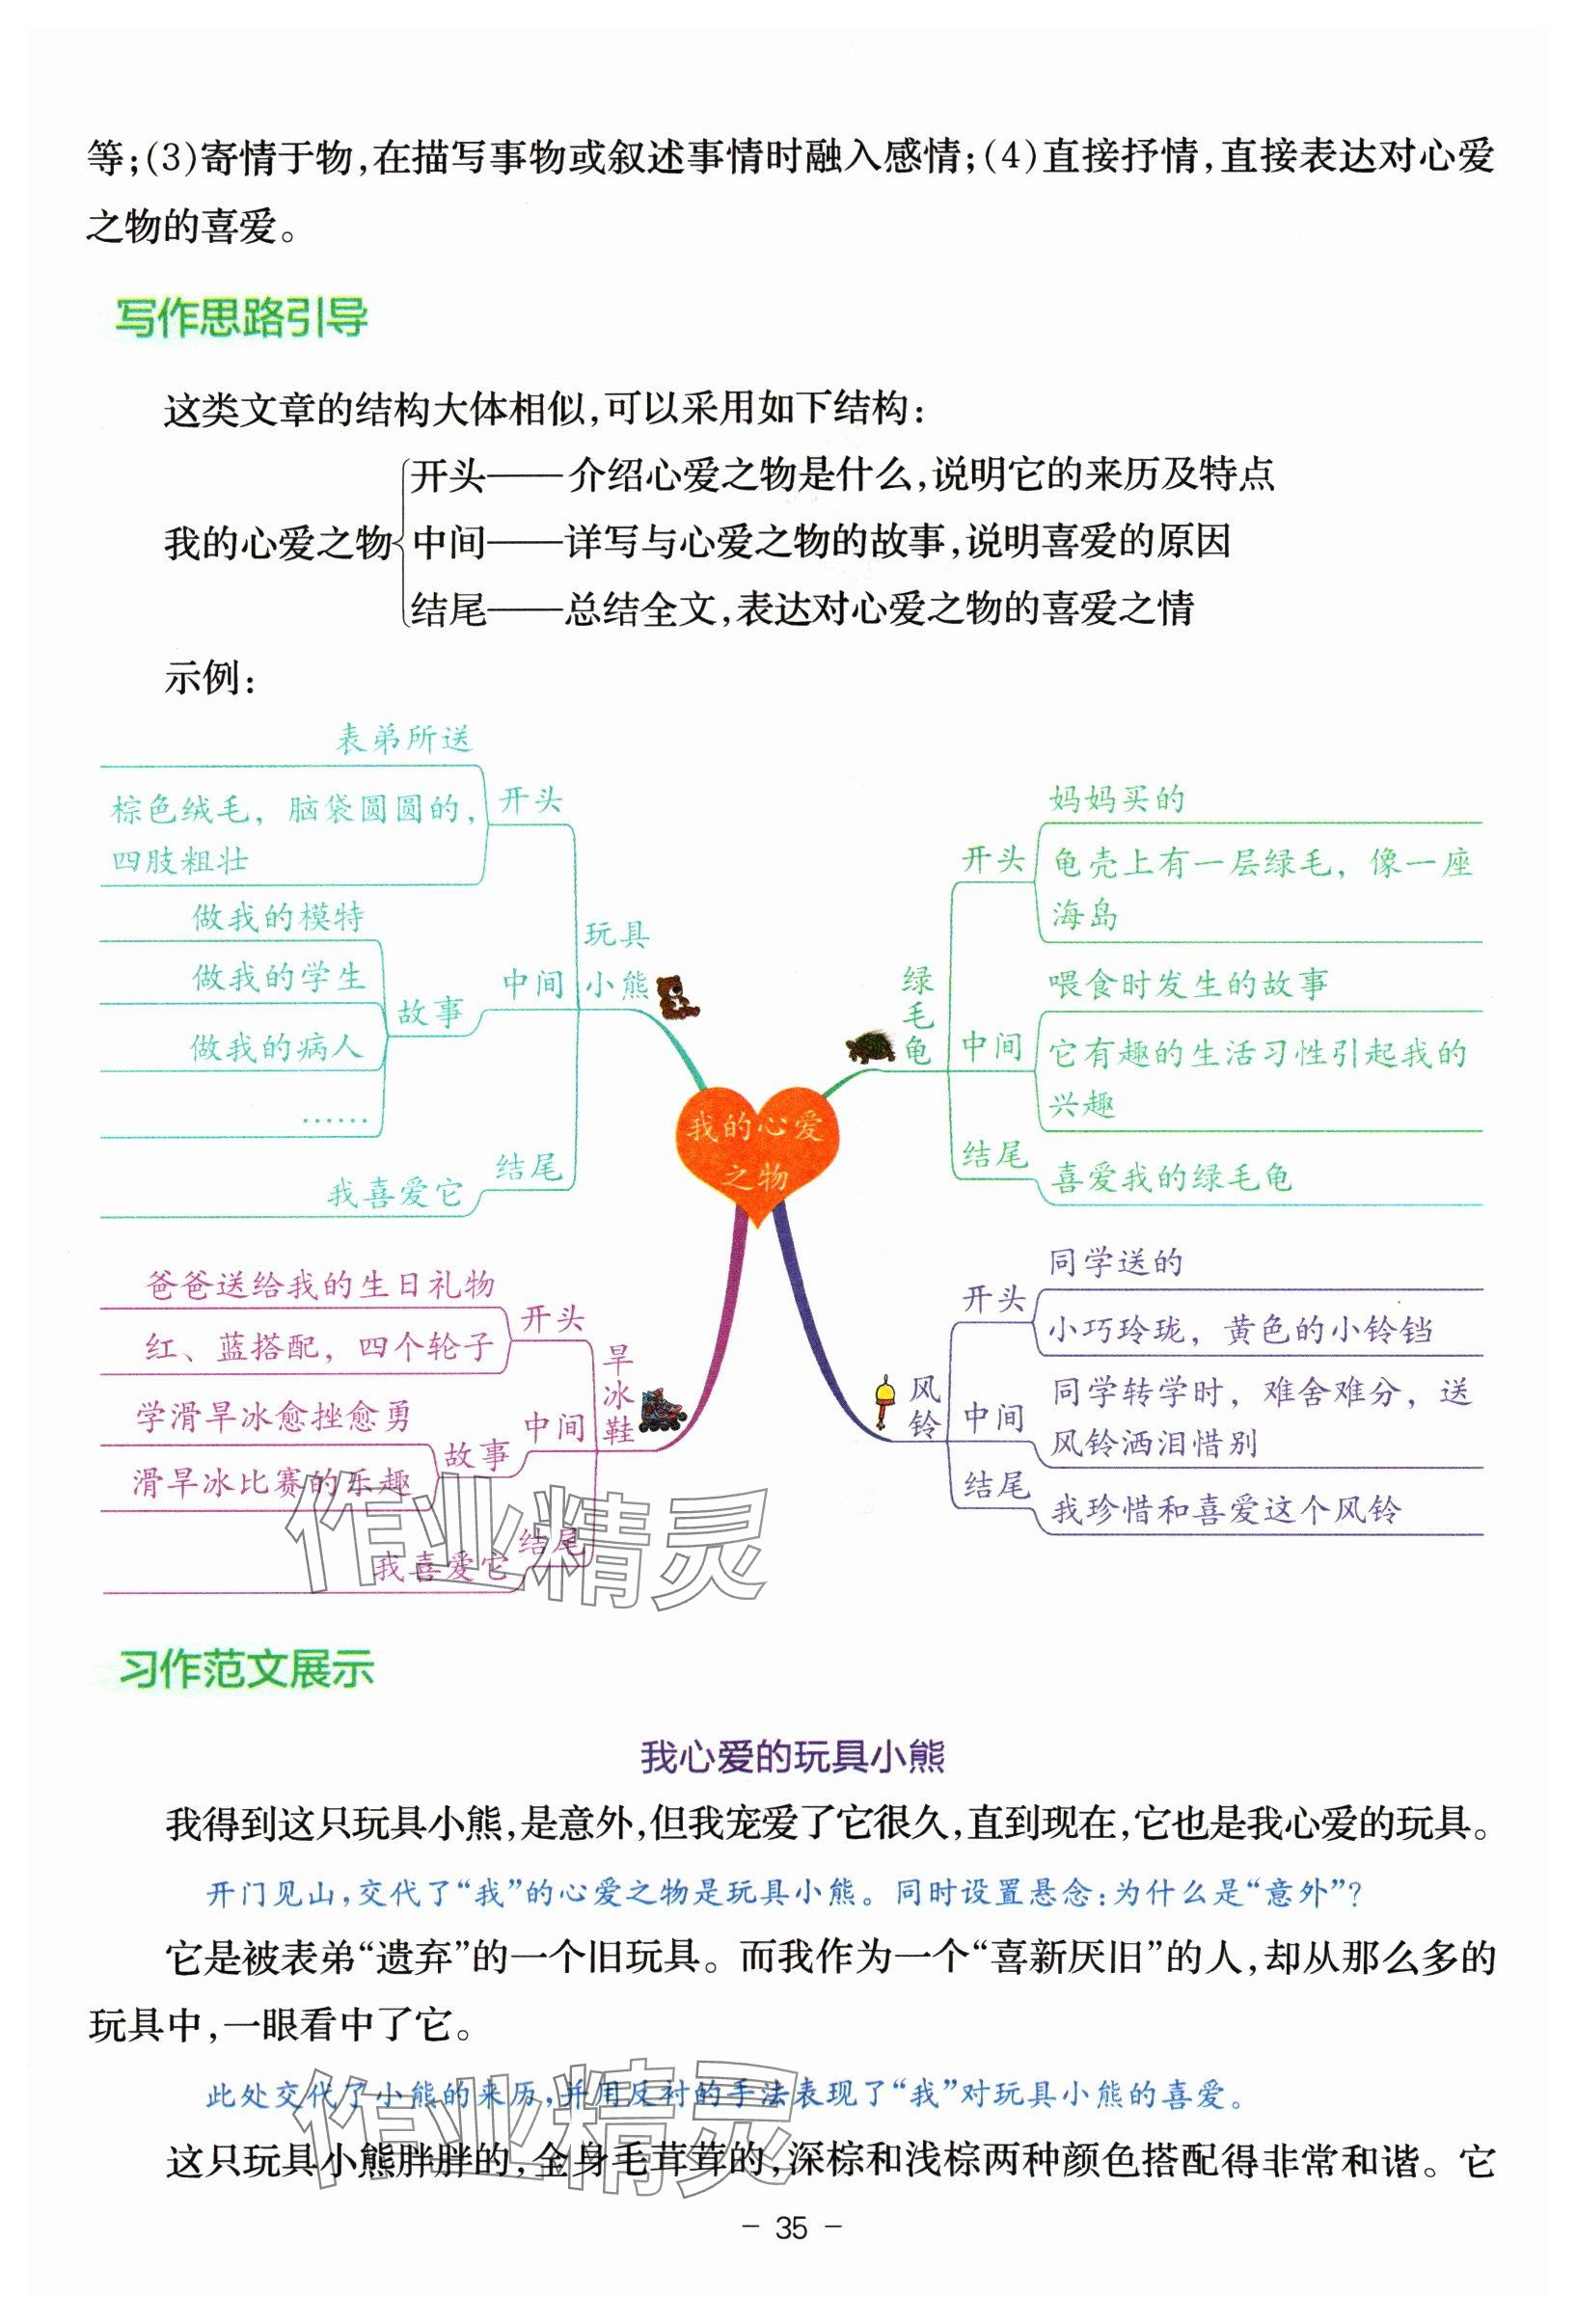 等;(3)寄情于物,在描写事物或叙述事情时融入感情;(4)直接抒情,直接表达对心爱
之物的喜爱。
写作思路引导
这类文章的结构大体相似,可以采用如下结构:
我的心爱之物
开头——介绍心爱之物是什么,说明它的来历及特点
中间——详写与心爱之物的故事,说明喜爱的原因
结尾——总结全文,表达对心爱之物的喜爱之情
示例:
我的心爱
之物
玩具
小熊
开头
表弟所送
棕色绒毛，脑袋圆圆的，
四肢粗壮
中间
故事
做我的模特
做我的学生
做我的病人
……
结尾
我喜爱它
绿毛龟
开头
妈妈买的
龟壳上有一层绿毛，像一座
海岛
中间
喂食时发生的故事
它有趣的生活习性引起我的
兴趣
结尾
喜爱我的绿毛龟
旱冰鞋
开头
爸爸送给我的生日礼物
红、蓝搭配，四个轮子
中间
故事
学滑旱冰愈挫愈勇
滑旱冰比赛的乐趣
结尾
我喜爱它
风铃
开头
同学送的
小巧玲珑，黄色的小铃铛
中间
同学转学时，难舍难分，送
风铃洒泪惜别
结尾
我珍惜和喜爱这个风铃
作业精灵
习作范文展示
我心爱的玩具小熊
我得到这只玩具小熊,是意外,但我宠爱了它很久,直到现在,它也是我心爱的玩具。
开门见山,交代了“我”的心爱之物是玩具小熊。同时设置悬念:为什么是“意外”?
它是被表弟“遗弃”的一个旧玩具。而我作为一个“喜新厌旧”的人,却从那么多的
玩具中,一眼看中了它。
此处交代了小熊的来历,并用反衬的手法表现了“我”对玩具小熊的喜爱。
作业精灵
这只玩具小熊胖胖的,全身毛茸茸的,深棕和浅棕两种颜色搭配得非常和谐。它
- 35 -